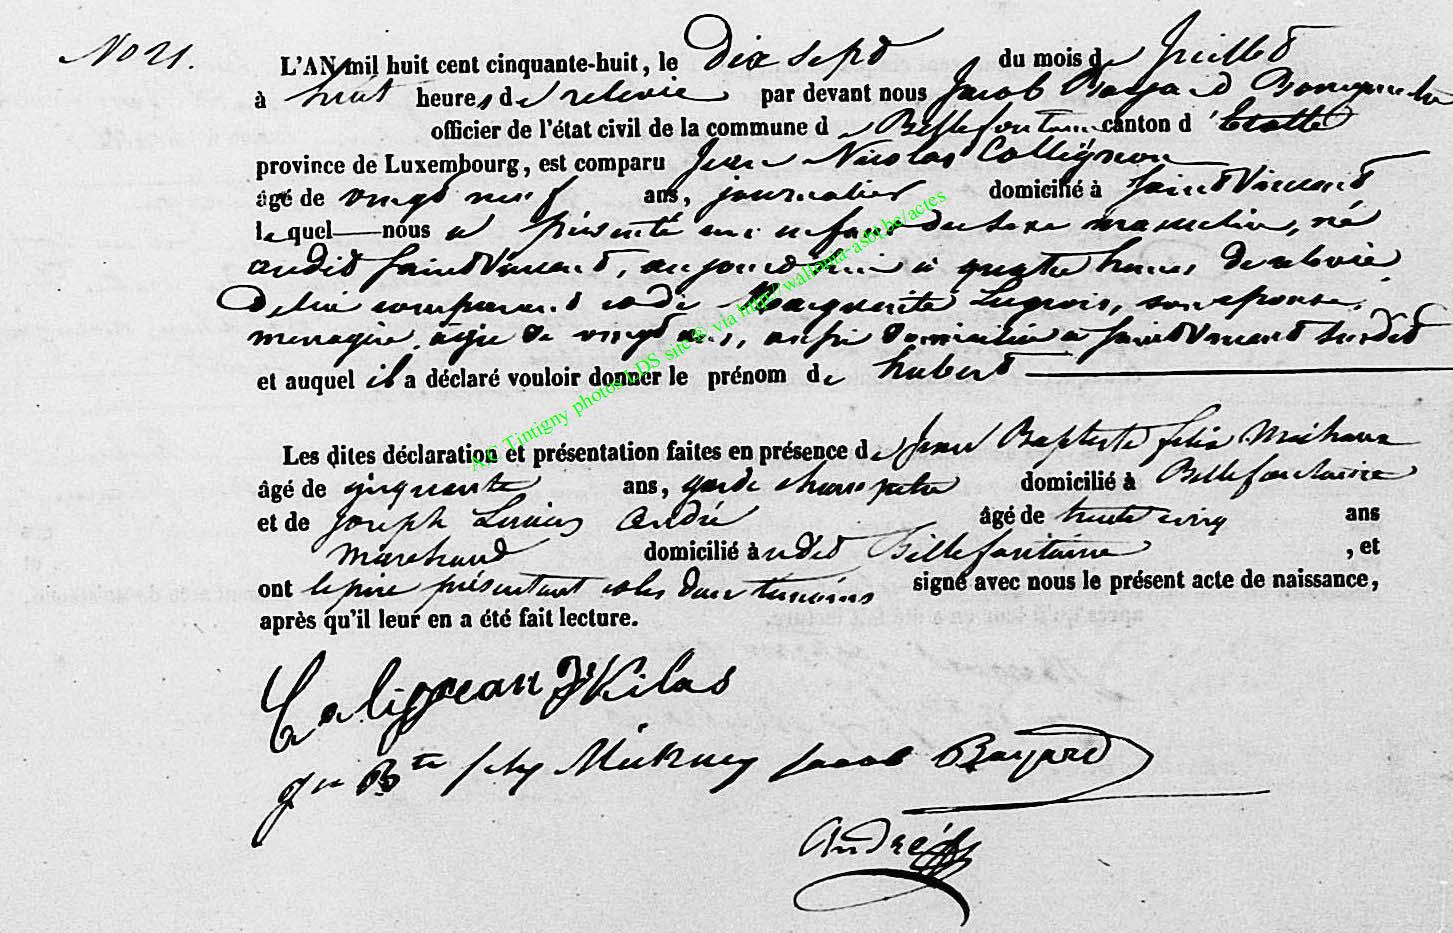 No 21.
L'AN mil huit cent cinquante-huit, le Dix sept du mois de Juillet
à huit heures de relevée par devant nous Jacob Bayard Bourgmestre
officier de l'état civil de la commune de Bellefontaine canton d'Etalle
province de Luxembourg, est comparu Jean Nicolas Collignon
âgé de vingt neuf ans, journalier domicilié à Saint Vincent
lequel nous a présenté un enfant du sexe masculin, né
audit Saint Vincent, aujourd'hui à quatre heures de relevée
De lui comparant et de Marguerite son épouse,
menagère, agée de vingt ans, aussi domiciliée à Saint Vincent susdit
et auquel il a déclaré vouloir donner le prénom de hubert
Les dites déclaration et présentation faites en présence de Jean Baptiste felix
âgé de cinquante ans, garde champetre domicilié à Bellefontaine
et de Joseph André âgé de trente cinq ans
Marchand domicilié à udit Bellefontaine , et
ont le père présentant et les deux temoins signé avec nous le présent acte de naissance,
après qu'il leur en a été fait lecture.
Colignean Jn Kilas
Jn Bte Jacob Bayard
André
A.C Tintigny photos LDS site® via http://waltonia-asbl.be/actes